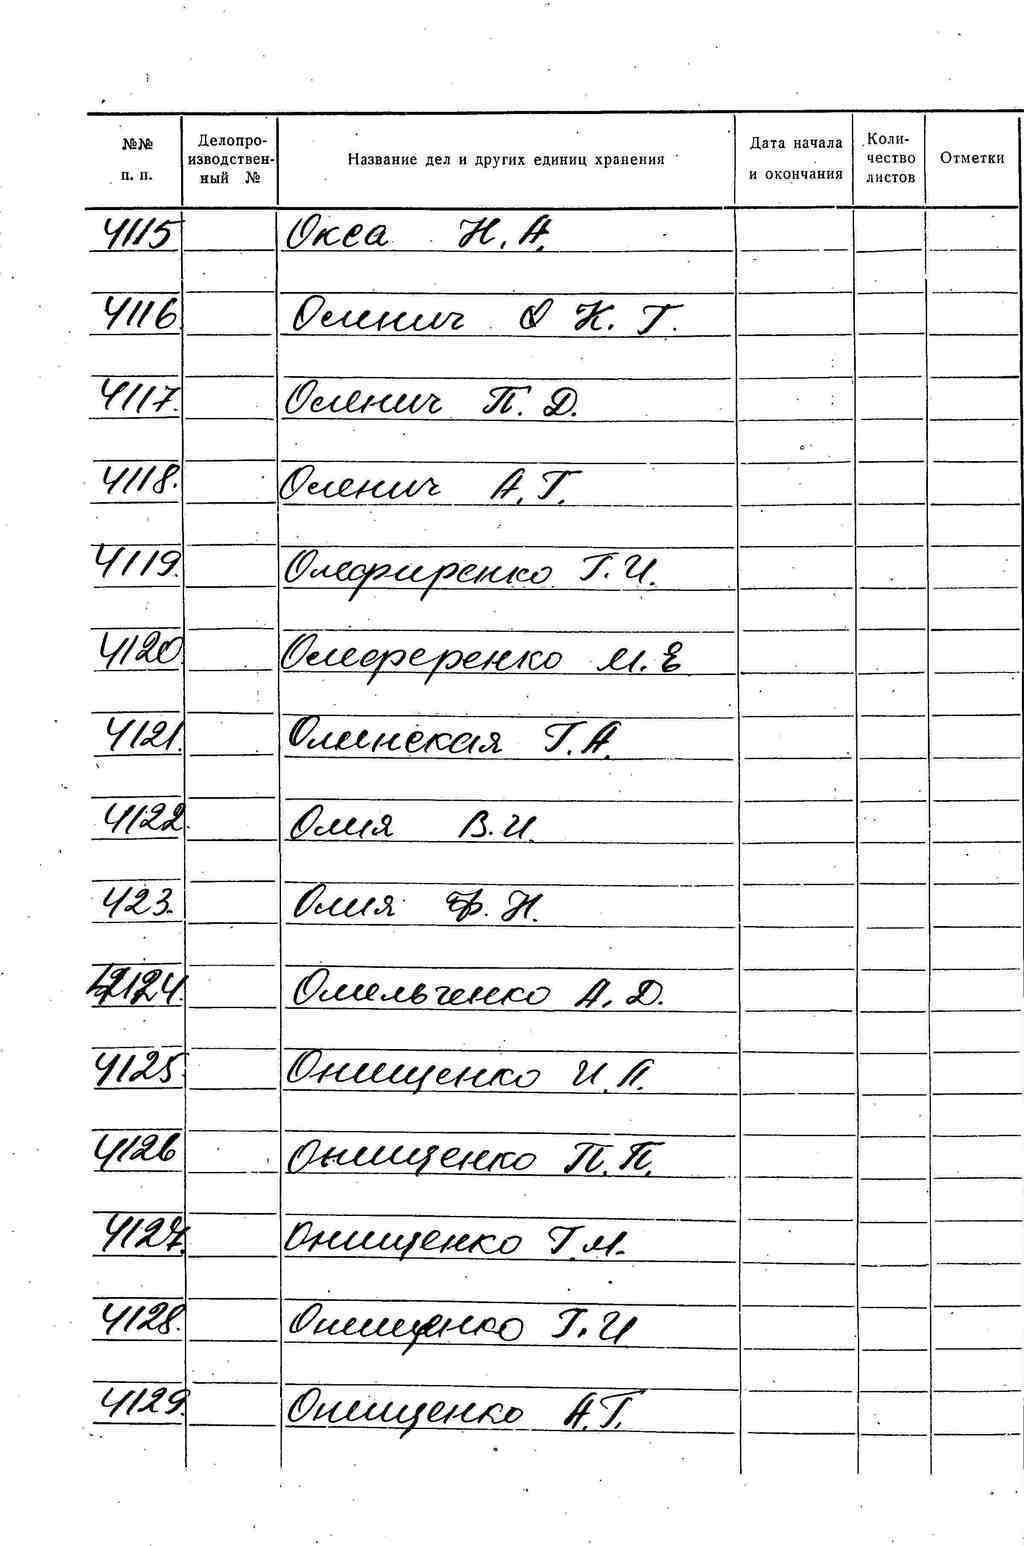 №№ п. п.
Делопро-
изводствен-
ный №
Название дел и других единиц хранения
Дата начала
и окончания
Коли-
чество
листов
Отметки
4115 Окса Н. А.
4116 Оленич К. Г.
4117. Оленич П. Д.
4118. Оленич А. Г.
4119. Олефиренко Г. И.
4120 Олеференко М. Е
4121. Олинская Г. А.
4122. Олия В. И.
423. Олия Ф. Н.
4124. Омельченко А. Д.
4125. Онищенко И. П.
4126 Онищенко П. П.
4127. Онищенко Г. М.
4128. Онищенко Г. И
4129. Онищенко А. Г.